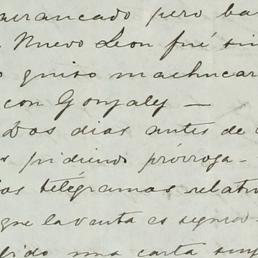 arrancado pero ba
Nuevo Leon fué sin
quiso machucar
con Gonzalez —
Dos dias antes de
pidiendo prórroga -
telegramas relativ
que la venta es
una carta